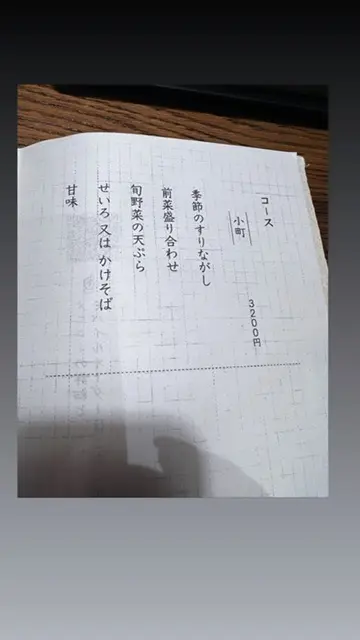 コース
小町
3200円
季節のすりながし
前菜盛り合わせ
旬野菜の天ぷら
せいろ 又は かけそば
甘味